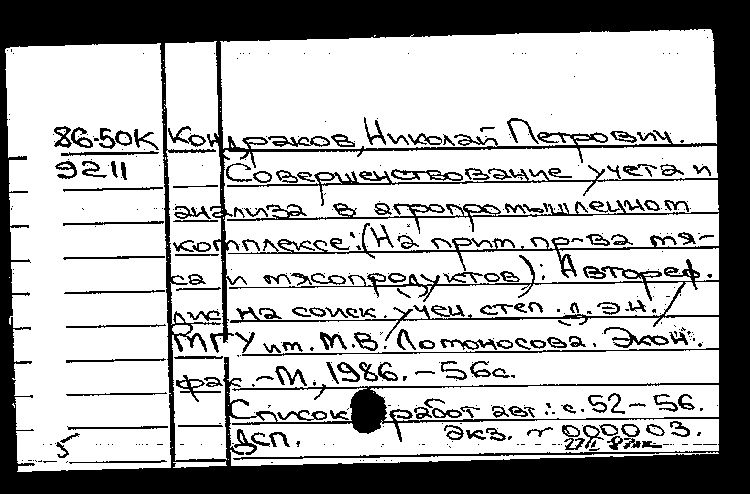 86-50К Кондраков, Николай Петрович.
9211 Совершенствование учета и
анализа в агропромышленном
комплексе: (На прим. пр-ва мя-
са и мясопродуктов): Автореф.
дис. на соиск. учен. степ. д.э.н. /
МГУ им. М.В. Ломоносова. Экон.
фак. - М., 1986. - 56с.
Список работ авт.: с. 52-56.
5 Дсп. экз. ~ 000003.